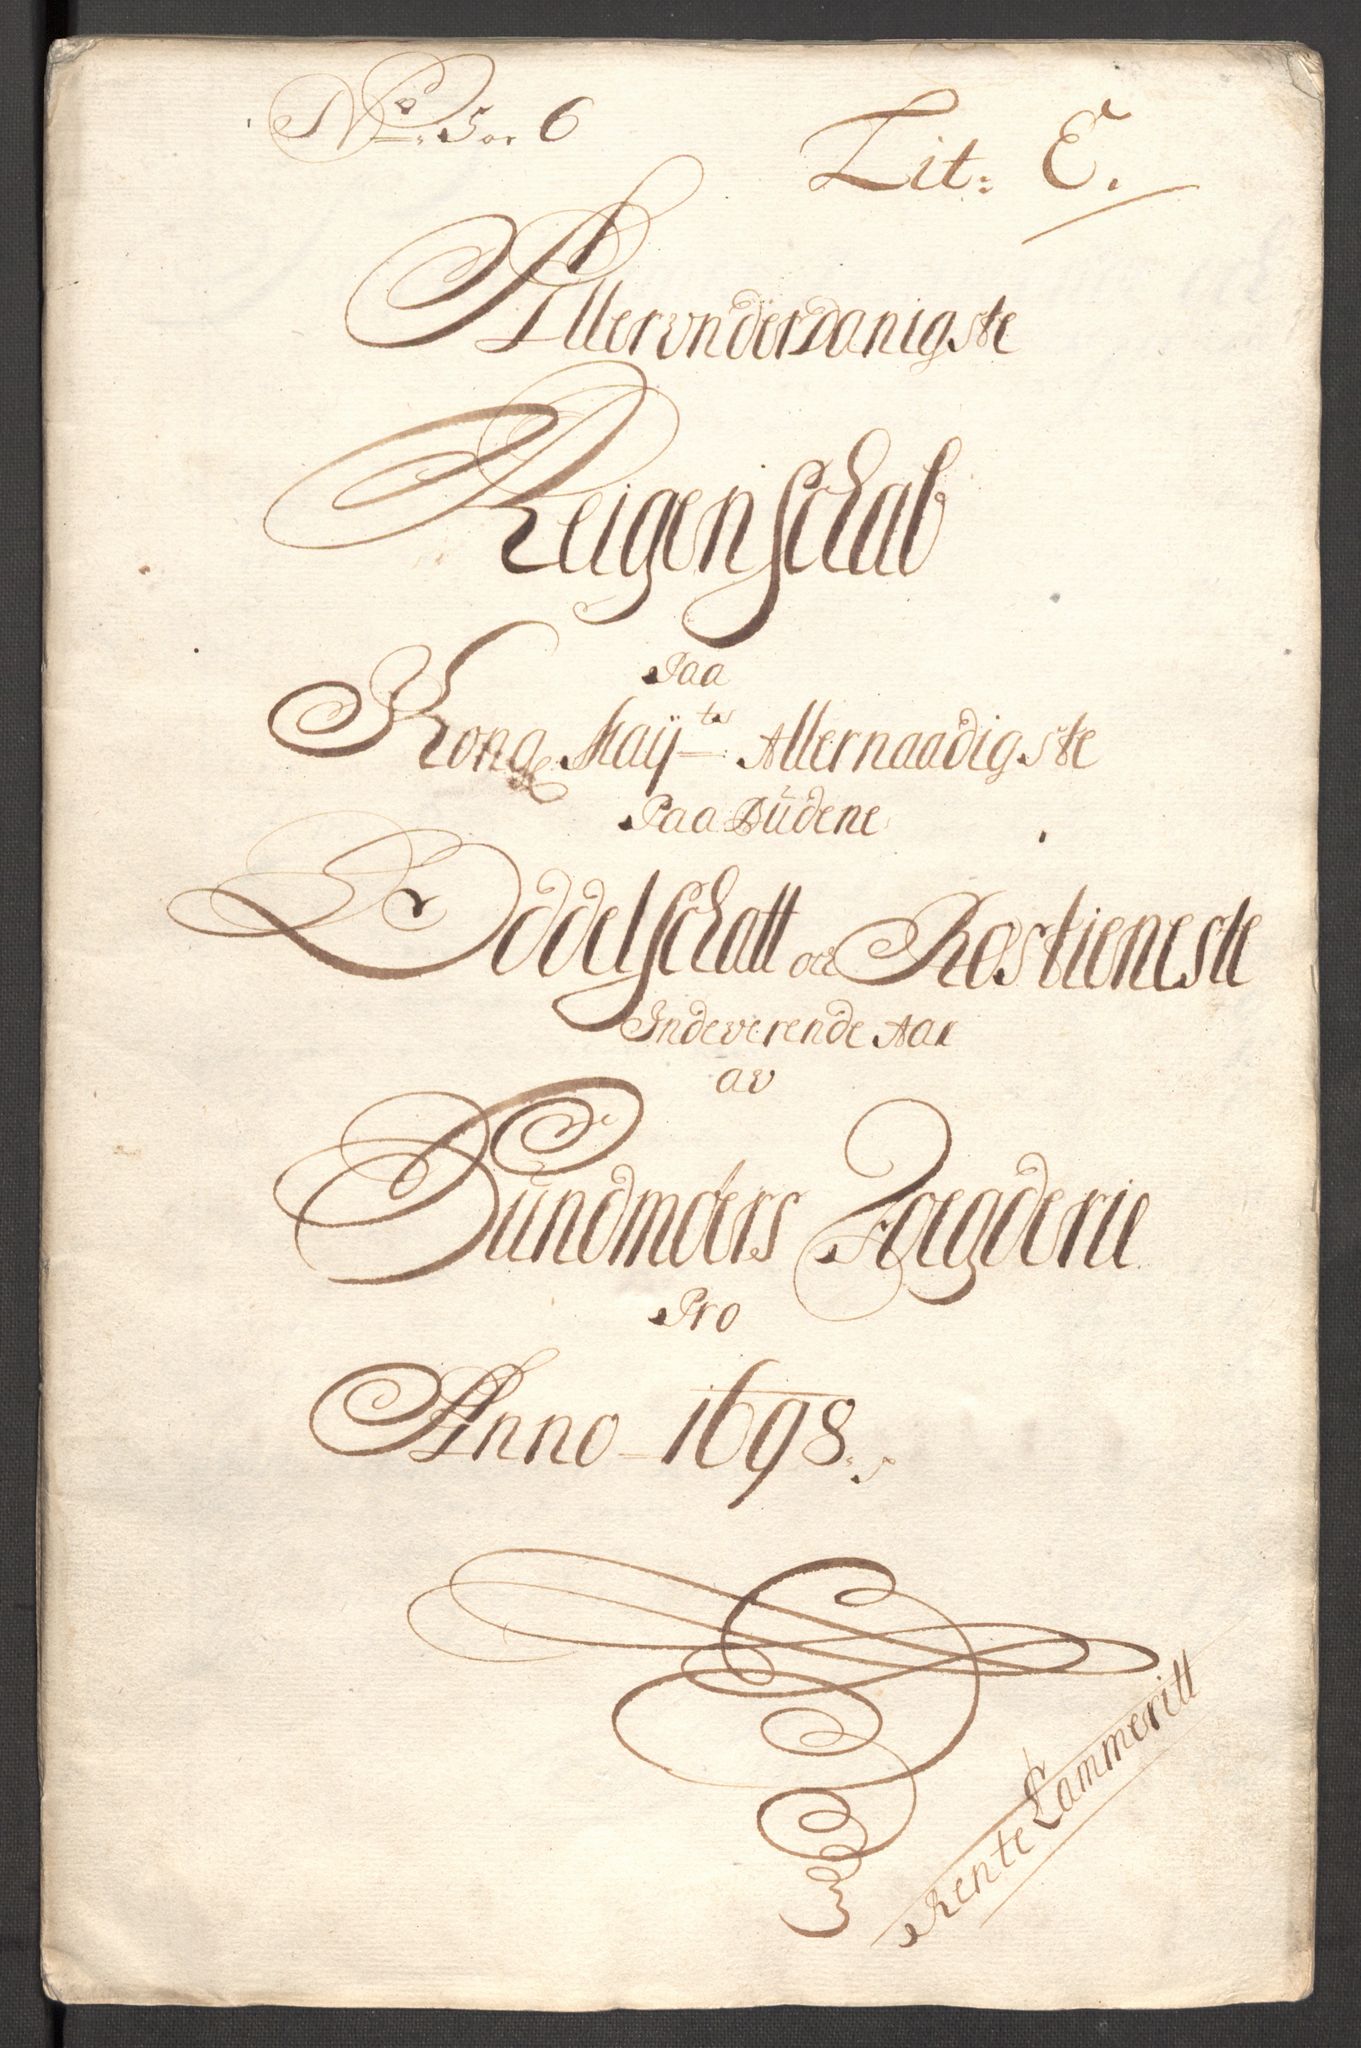 No 5 or 6
Lit: E.
Allerunderdanigste
Reigenschab
Paa
Kong May:ts Allernaadigste
Paa Büdene
Oddelschatt och Rostieneste
Indeverende Aar
av
Sündmøers Foegderie
Pro
Anno 1698.
Rente Cammeritt